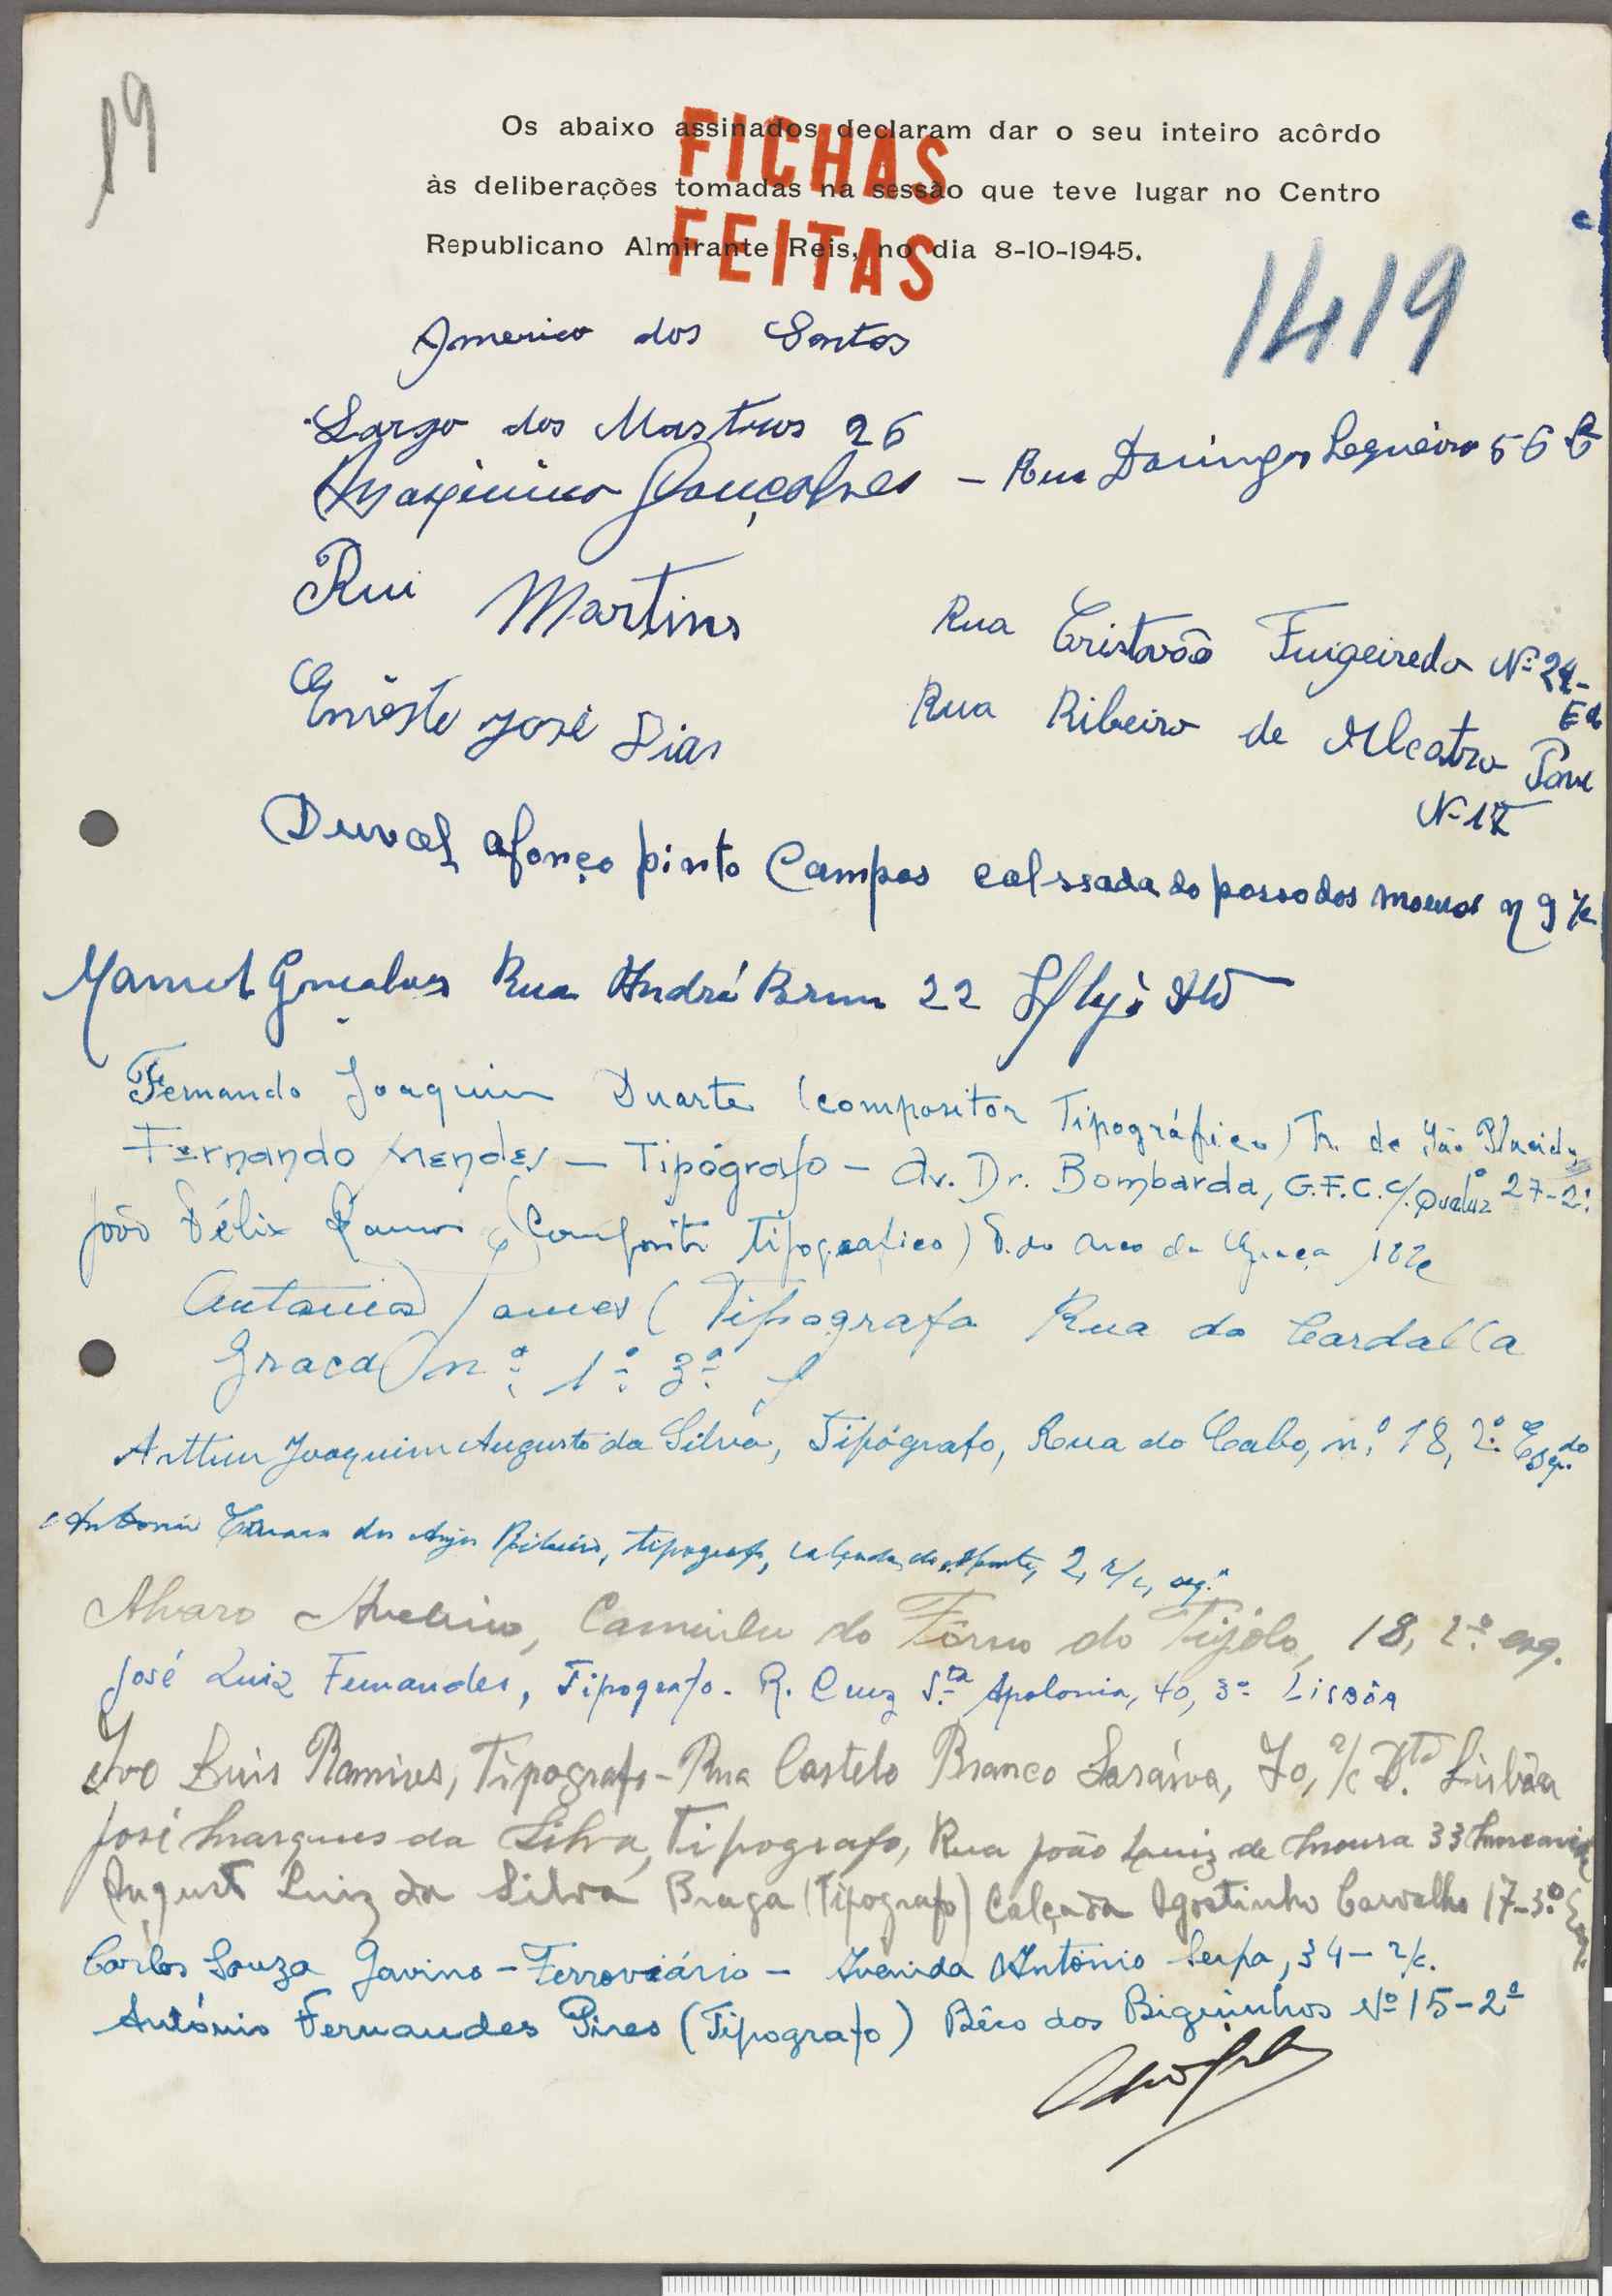 19
Os abaixo assinados declaram dar o seu inteiro acôrdo
às deliberações tomadas na sessão que teve lugar no Centro
Republicano Almirante Reis, no dia 8-10-1945.
FICHAS
FEITAS
1419
Americo dos Santos
Largo dos Mastros 26
Maximino Gonçalves - Rua Domingos Sequeira 56
Rui Martins Rua Cristovão Fuigeiredo Nº 24-
Ernesto José Dias Rua Ribeiro de
Nº 17
Duval Afonço pinto Campos calssada do possodos mouros n 9 r/c
Manuel Gonçalves Rua André Brun 22
Fernando Joaquim Duarte (compositor Tipográfico) Tr. de São Plácido
Fernando Mendes - Tipógrafo - Av. Dr. Bombarda, G.F.C. c/. Queluz 27-2º
João Félix Ramos Tipografico)
Antonio Gomes (Tipografo Rua da
Graca) nº 1º 3º
Arthur Joaquim Augusto da Silva, Tipógrafo, Rua do Cabo, n.º 18, 2.º Esqdo
Antonio dos Anjos Ribeiro, tipografo, calçada do Monte, 2, r/c, esq.º
Alvaro Avelino, Caminho do Fôrno do Tijôlo, 18, 2.º esq.
José Luiz Fernandes, Tipografo - R. Cruz S.ta Apolonia, 40, 3º Lisbôa
Ivo Luis Ramires, Tipografo - Rua Castelo Branco Saraiva, 70, r/c D.to Lisbôa
José Marques da Silva, Tipografo, Rua João Luiz de Moura 33
August Luiz da Silva Braga (Tipografo) Calçada Agostinho Carvalho 17-3.º Esq.
Carlos Souza Gavino - Ferroviário - Avenida António Serpa, 34 - r/c.
António Fernandes Pires (Tipografo) Bêco dos Biguinhos Nº 15 - 2º